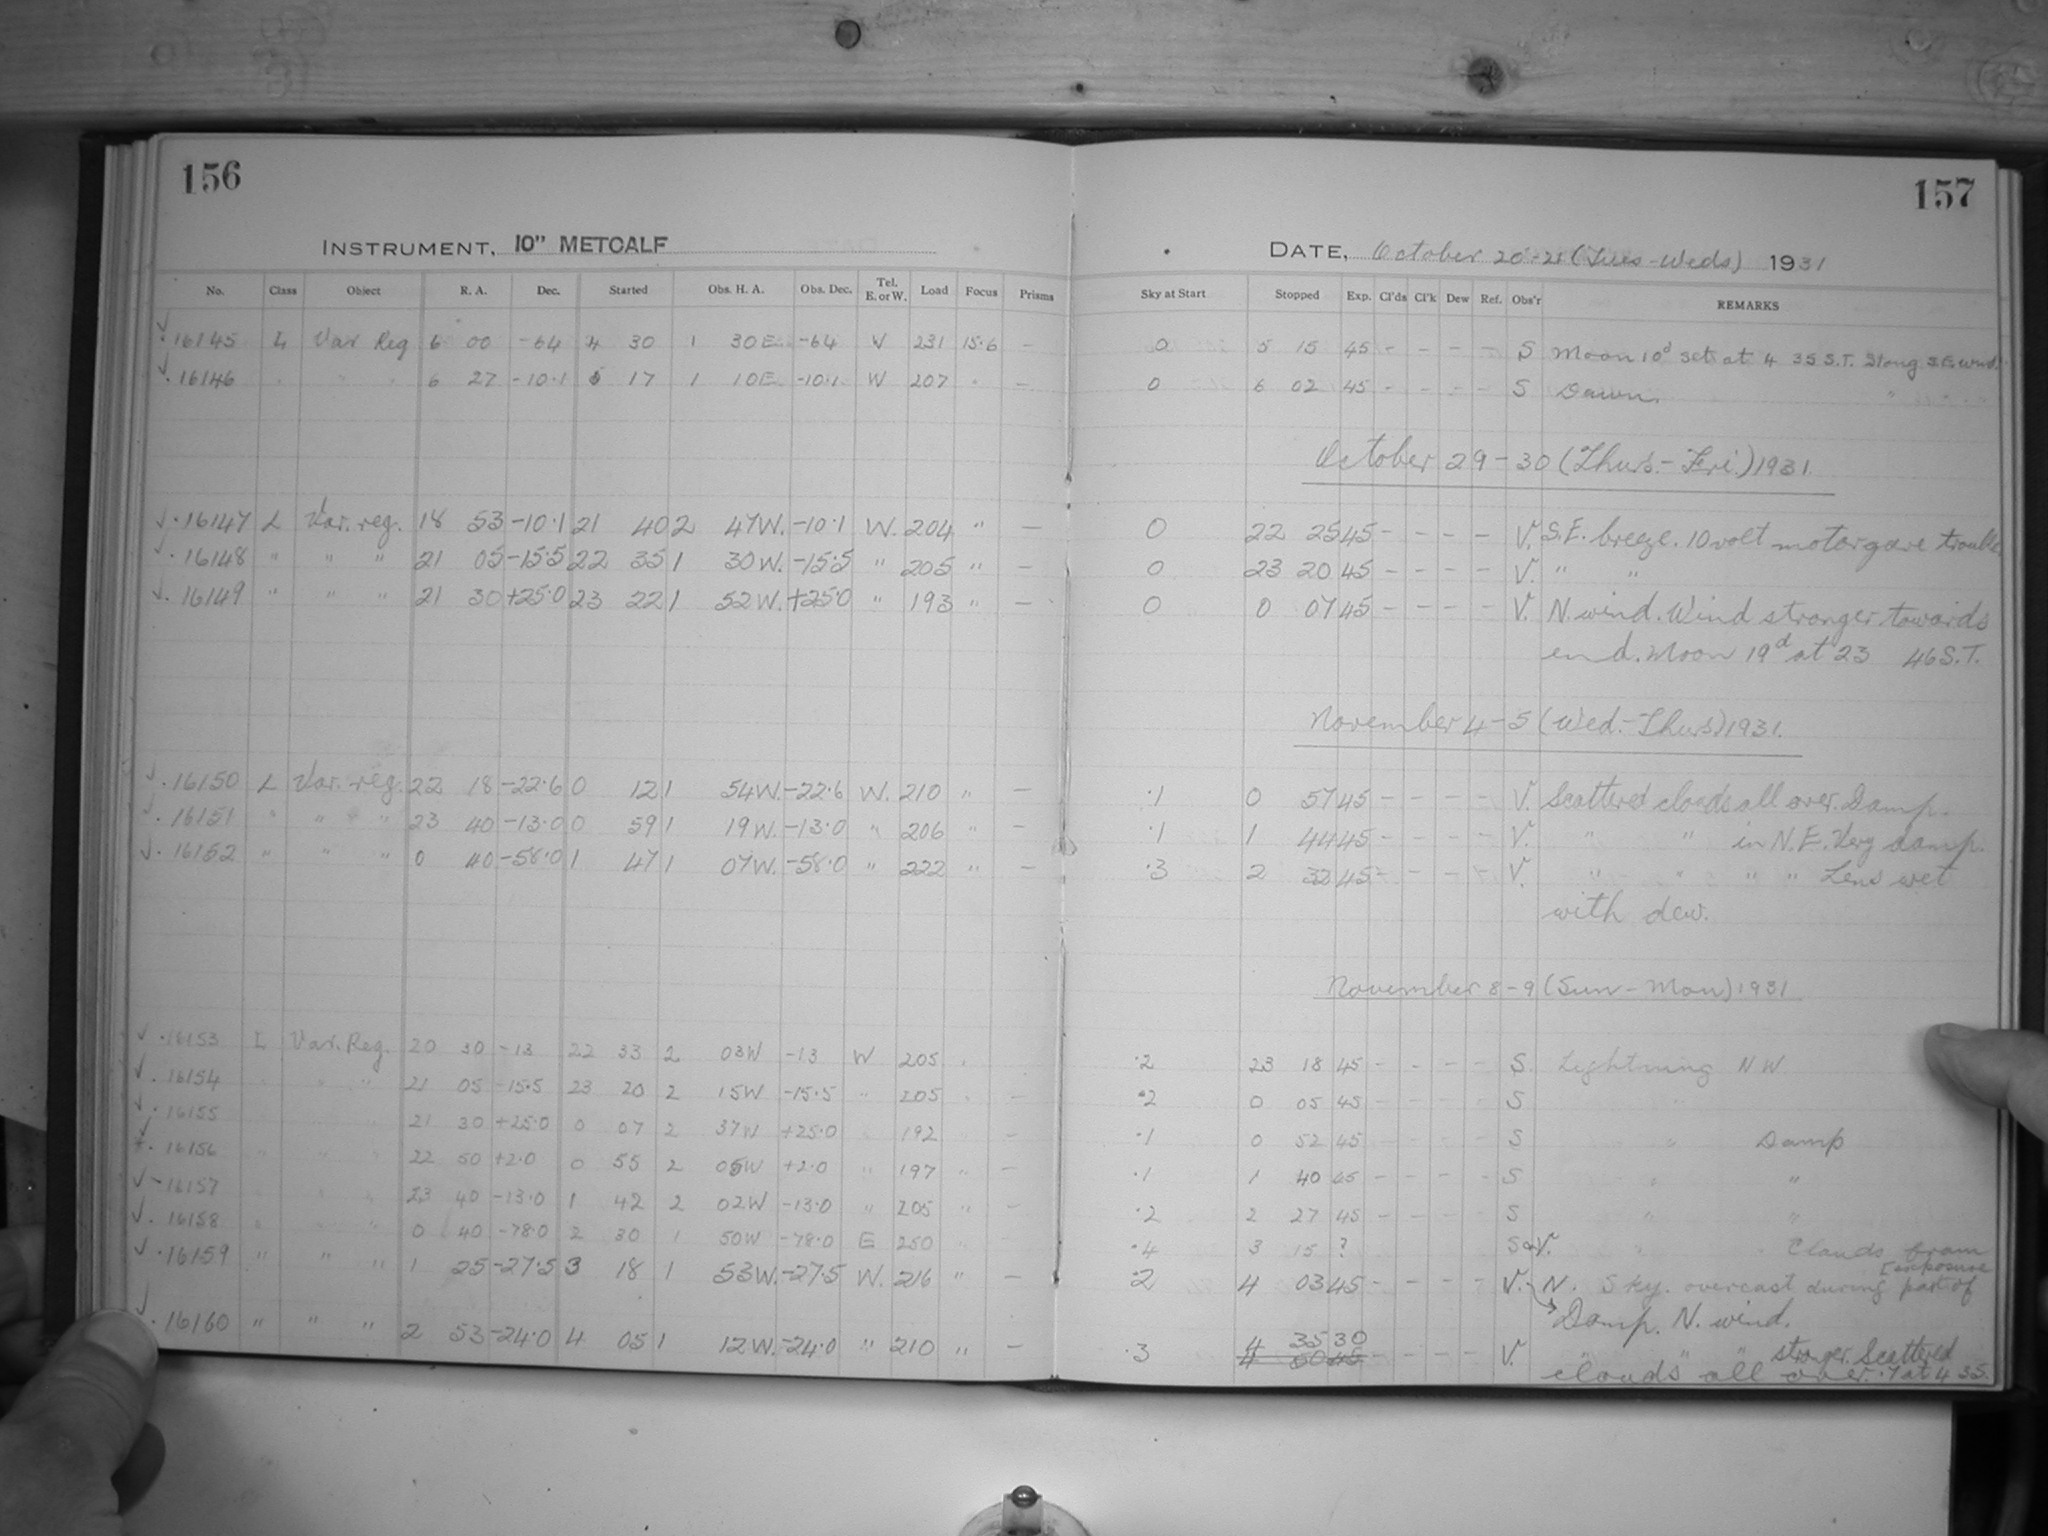 156
157
INSTRUMENT, 10" METCALF
DATE, October 20-21 (Tues-Weds) 1931
No. Class Object R. A. Dec. Started Obs. H. A. Obs. Dec. Tel. E. or W. Load Focus Prisms Sky at Start Stopped Exp. Cl'ds Cl'k Dew Ref. Obs'r REMARKS
16145 L Var Reg 6 00 -64 4 30 1 30E -64 W 231 15.6 - 0 5 15 45 - - - - S Moon 10d sets at 4 35 S.T. Strong S.E. wind.
16146 " " " 6 27 -10.1 5 17 1 10E -10.1 W 207 " - 0 6 02 45 - - - - S Dawn. "
October 29-30 (Thurs.-Fri.) 1931.
16147 L Var. reg. 18 53 -10.1 21 40 2 47W. -10.1 W. 204 " - 0 22 25 45 - - - - V. S.E. breeze. 10 volt motor gave trouble
16148 " " " 21 05 -15.5 22 35 1 30W. -15.5 " 205 " - 0 23 20 45 - - - - V. " "
16149 " " " 21 30 +25.0 23 22 1 52W. +25.0 " 193 " - 0 0 07 45 - - - - V. N. wind. Wind stronger towards
end. Moon 19d at 23 46 S.T.
November 4-5 (Wed.-Thurs) 1931.
16150 L Var. reg. 22 18 -22.6 0 12 1 54W. -22.6 W. 210 " - .1 0 57 45 - - - - V. Scattered clouds all over. Damp.
16151 " " " 23 40 -13.0 0 59 1 19W. -13.0 " 206 " - .1 1 44 45 - - - - V. " " in N.E. Very damp.
16152 " " " 0 40 -58.0 1 47 1 07W. -58.0 " 222 " - .3 2 32 45 - - - - V. " " " " Lens wet
with dew.
November 8-9 (Sun-Mon) 1931
16153 L Var. Reg. 20 30 -13 22 33 2 03W -13 W 205 " .2 23 18 45 - - - - S. Lightning N W
16154 " " 21 05 -15.5 23 20 2 15W -15.5 " 205 " - .2 0 05 45 - - - - S "
16155 21 30 +25.0 0 07 2 37W +25.0 192 - .1 0 52 45 - - - - S " Damp
16156 " " " 22 50 +2.0 0 55 2 05W +2.0 " 197 " - .1 1 40 45 - - - - S " "
16157 " " 23 40 -13.0 1 42 2 02W -13.0 " 205 " - .2 2 27 45 - - - - S " "
16158 " " " 0 40 -78.0 2 30 1 50W -78.0 E 250 .4 3 15 ? S & V. " Clouds from
16159 " " " 1 25 -27.5 3 18 1 53W. -27.5 W. 216 " - .2 4 03 45 - - - - V. N. Sky overcast during part of exposure
Damp. N. wind.
16160 " " " 2 53 -24.0 4 05 1 12W. -24.0 " 210 " - .3 4 35 30 - - - - V. " " " stronger. Scattered
4 50 45
clouds all over. .7 at 4 35.